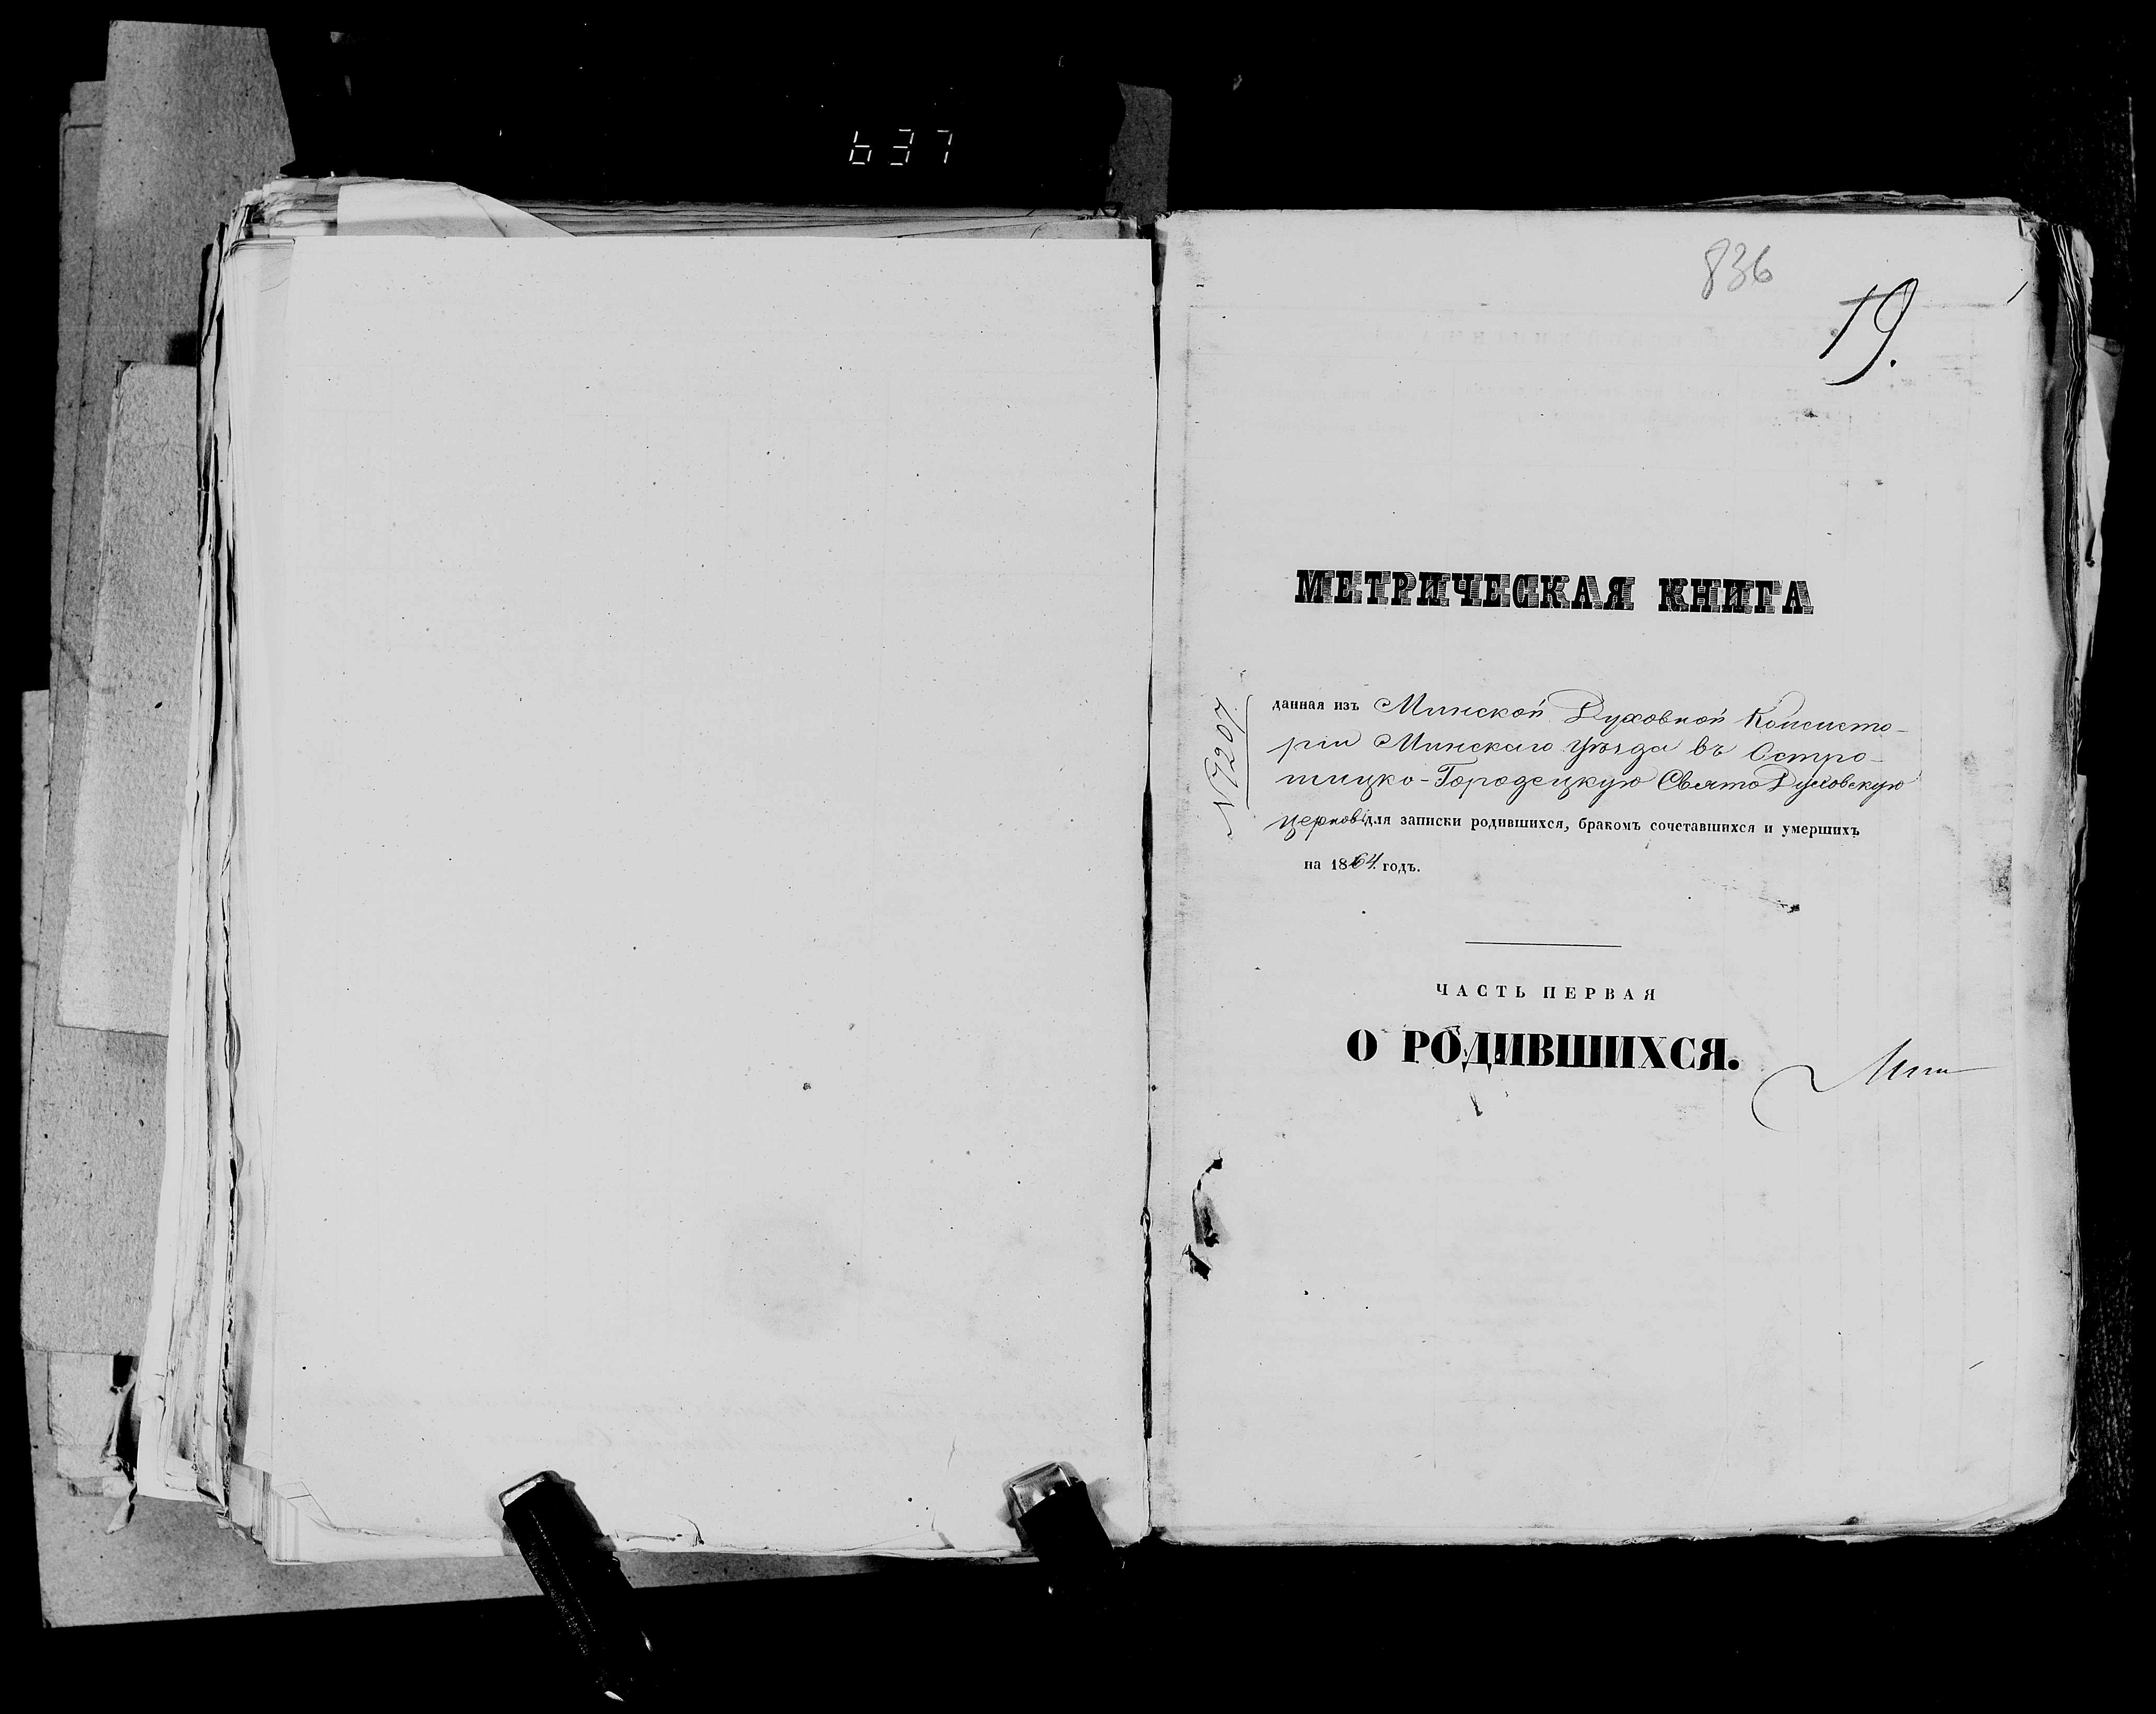 637
836
19.
МЕТРИЧЕСКАЯ КНИГА
№ 7207
данная изъ Минской Духовной Консисто-
ріи Минскаго Уѣзда въ Остро-
шицко-Городецкую Свято Духовскую
церковь для записки родившихся, бракомъ сочетавшихся и умершихъ
на 1864. годъ.
ЧАСТЬ ПЕРВАЯ
О РОДИВШИХСЯ.